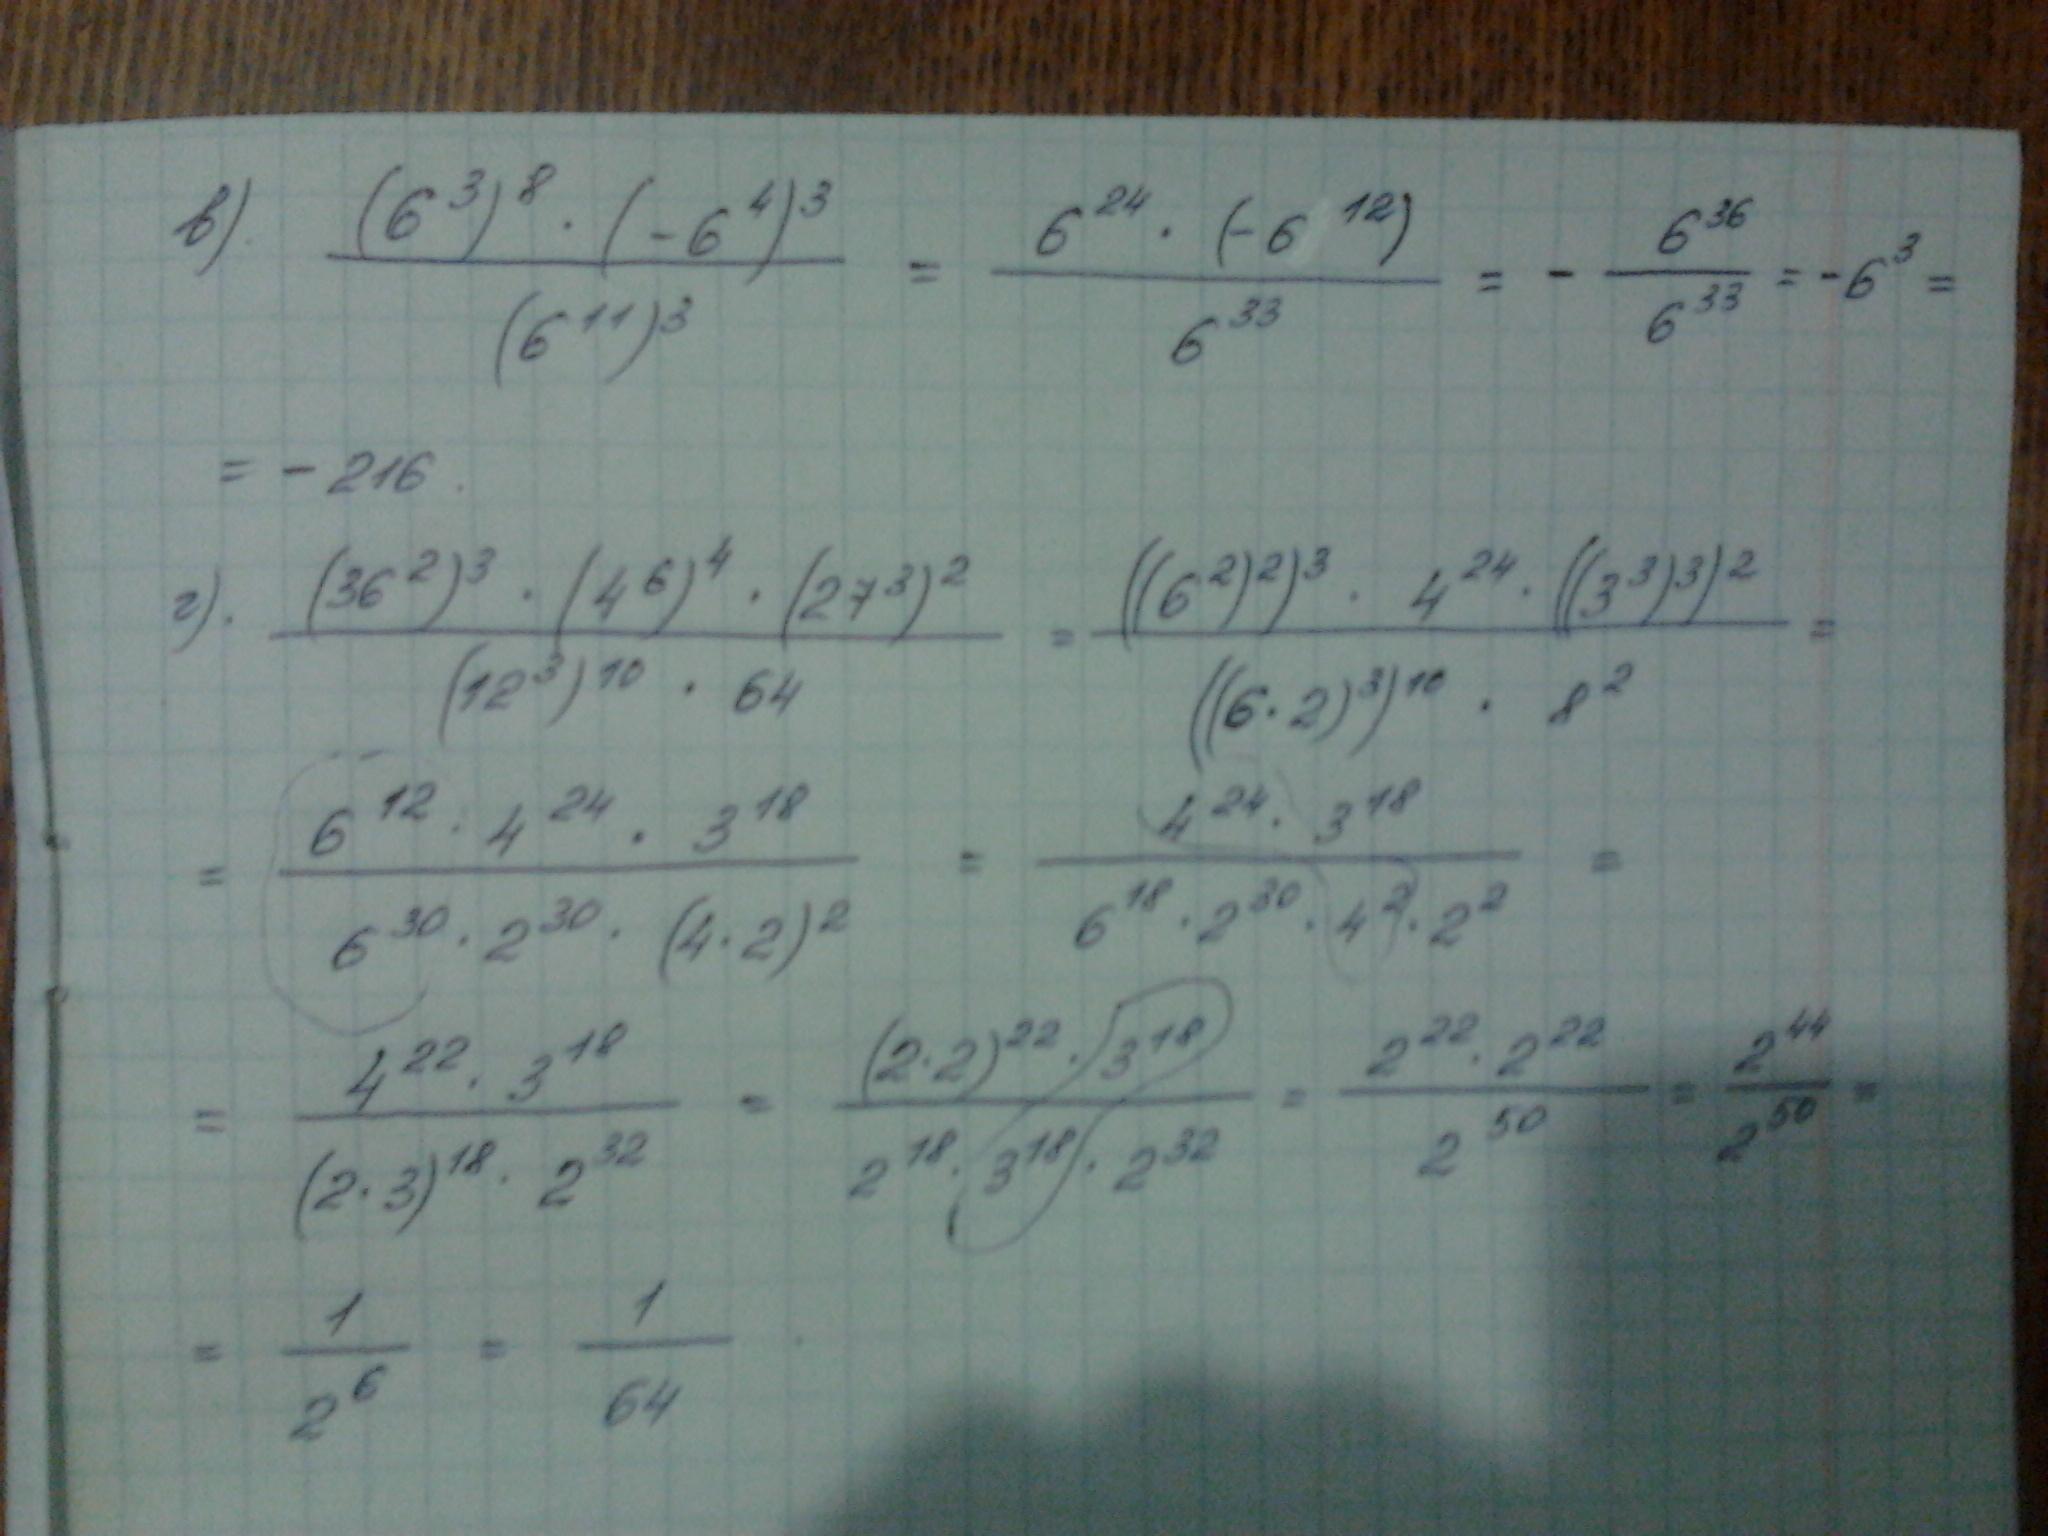 в). \frac{(6^3)^8 · (-6^4)^3}{(6^{11})^3} = \frac{6^{24} · (-6^{12})}{6^{33}} = - \frac{6^{36}}{6^{33}} = -6^3 =
= - 216.
г). \frac{(36^2)^3 · (4^6)^4 · (27^3)^2}{(12^3)^{10} · 64} = \frac{((6^2)^2)^3 · 4^{24} · ((3^3)^3)^2}{((6·2)^3)^{10} · 8^2} =
= \frac{6^{12} · 4^{24} · 3^{18}}{6^{30} · 2^{30} · (4·2)^2} = \frac{4^{24} · 3^{18}}{6^{18} · 2^{30} · 4^2 · 2^2} =
= \frac{4^{22} · 3^{18}}{(2·3)^{18} · 2^{32}} = \frac{(2·2)^{22} · 3^{18}}{2^{18} · 3^{18} · 2^{32}} = \frac{2^{22} · 2^{22}}{2^{50}} = \frac{2^{44}}{2^{50}} =
= \frac{1}{2^6} = \frac{1}{64}.